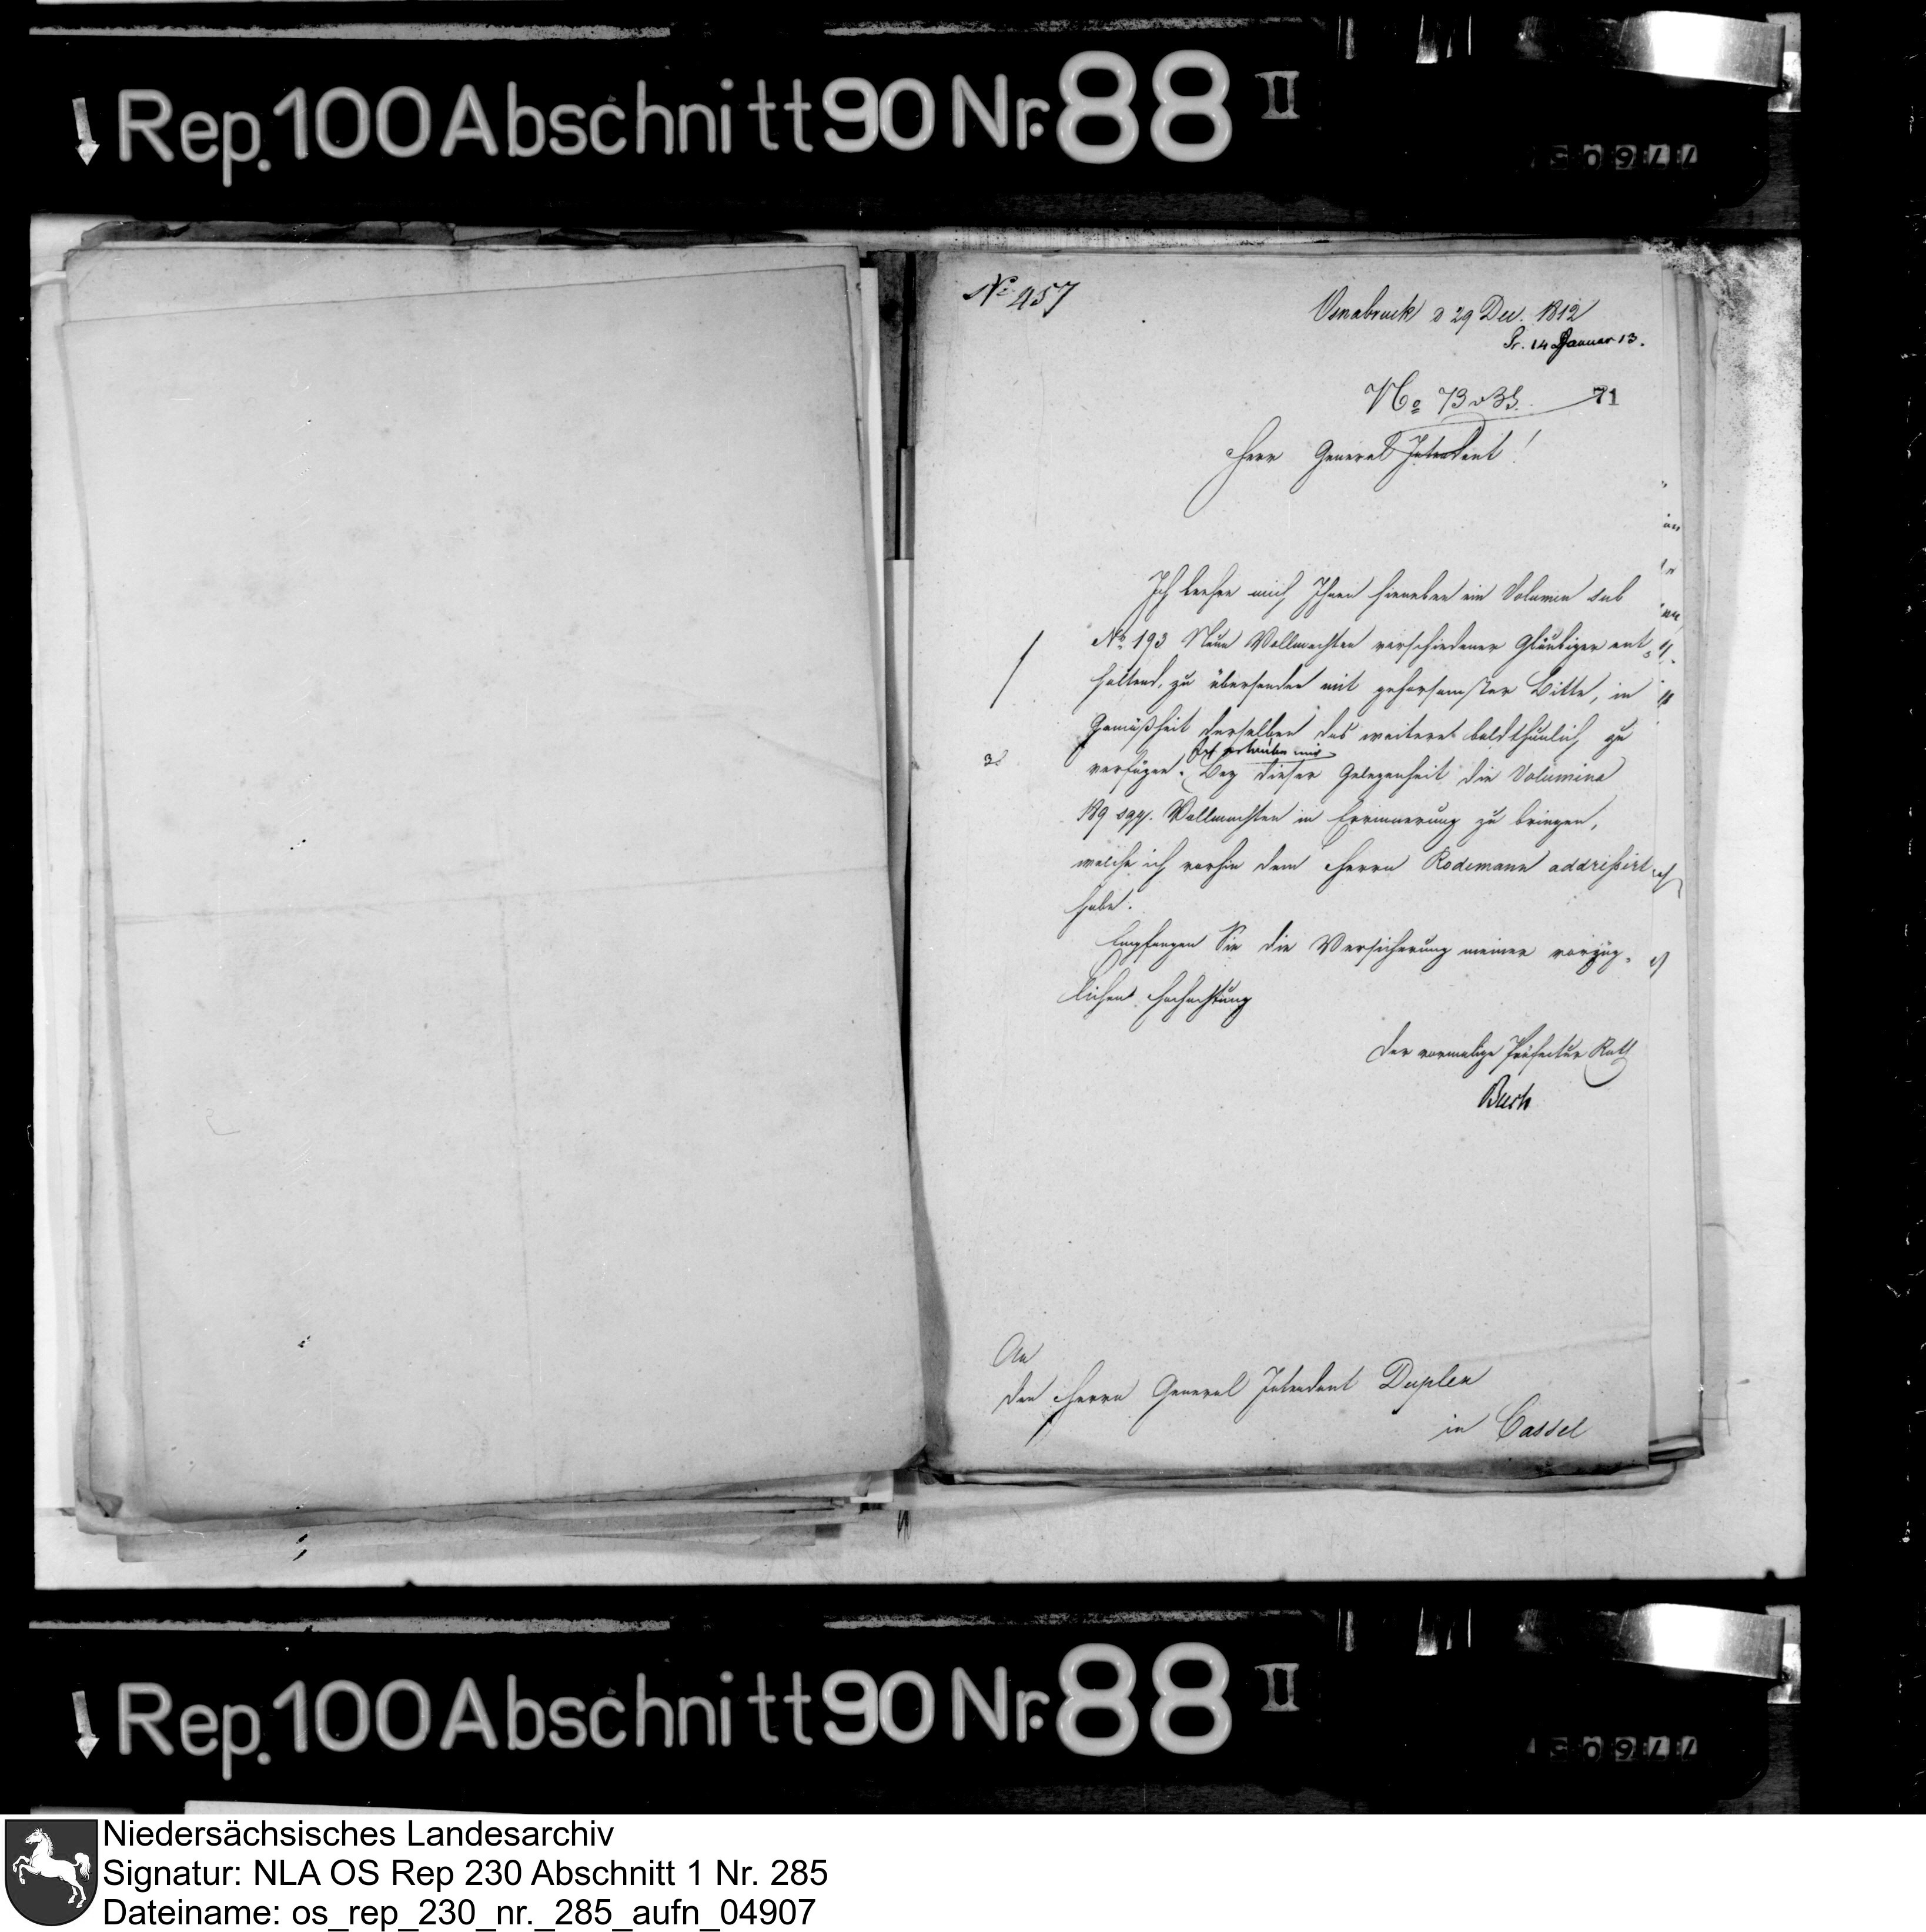 Rep. 100 Abschnitt 90 Nr. 88 II
77605
No 457
Osnabruck d 29 Dec. 1812
Pr. 14 Januar 13.
No 73
71
Herr General Intendent!
Ich beehre mich Ihnen hieneben ein Volumen sub
No 193 Neue Vollmachten verschiedener Gläubiger ent-
haltend, zu übersenden mit gehorsamster Bitte, in
Gemäßheit derselben das weitere baldthunlich zu
verfügen. Bey dieser Gelegenheit die Volumina
189 sqq. Vollmachten in Erinnerung zu bringen,
welche ich vorhin dem Herrn Rodemann addreßirt
habe.
Empfangen Sie die Versicherung meiner vorzüg-
lichen Hochachtung
der vormalige Präfectur Rath
Buch
An
den Herrn General Intendent Duplex
in Cassel
Rep. 100 Abschnitt 90 Nr. 88 II
77605
Niedersächsisches Landesarchiv
Signatur: NLA OS Rep 230 Abschnitt 1 Nr. 285
Dateiname: os_rep_230_nr._285_aufn_04907